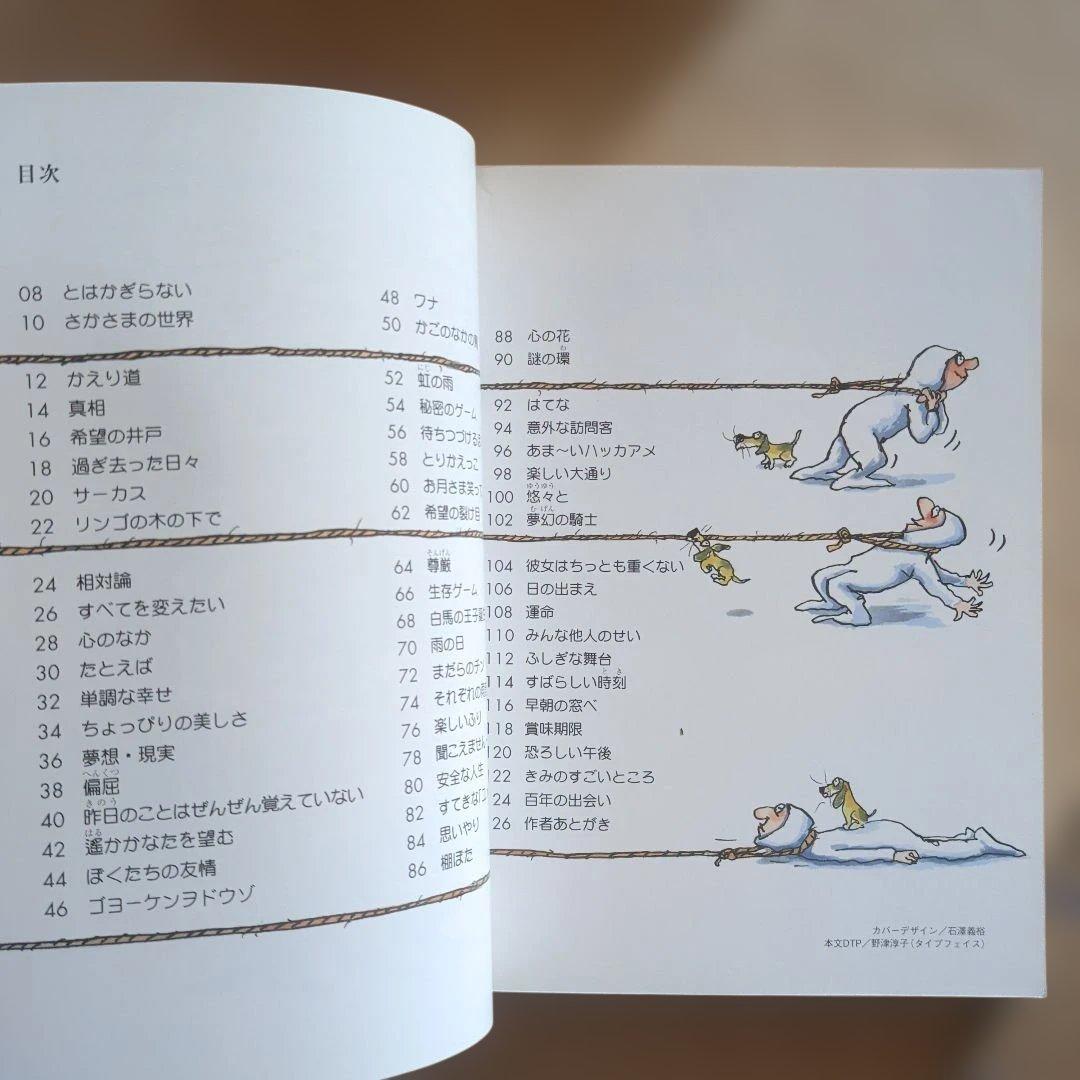 目次
08 とはかぎらない
10 さかさまの世界
12 かえり道
14 真相
16 希望の井戸
18 過ぎ去った日々
20 サーカス
22 リンゴの木の下で
24 相対論
26 すべてを変えたい
28 心のなか
30 たとえば
32 単調な幸せ
34 ちょっぴりの美しさ
36 夢想・現実
へんくつ
38 偏屈
きのう
40 昨日のことはぜんぜん覚えていない
はる
42 遙かかなたを望む
44 ぼくたちの友情
46 ゴヨーケンヲドウゾ
48 ワナ
50 かごのなかの
にじ
52 虹の雨
54 秘密のゲーム
56 待ちつづける
58 とりかえっこ
60 お月さま笑って
62 希望の裂け目
そんげん
64 尊厳
66 生存ゲーム
68 白馬の王子
70 雨の日
72 まだらのチン
74 それぞれの
76 楽しいふり
78 聞こえません
80 安全な人生
82 すてきな「エ
84 思いやり
86 棚ぼた
88 心の花
わ
90 謎の環
92 はてな
94 意外な訪問客
96 あま〜いハッカアメ
98 楽しい大通り
ゆうゆう
100 悠々と
むげん
102 夢幻の騎士
104 彼女はちっとも重くない
106 日の出まえ
108 運命
110 みんな他人のせい
112 ふしぎな舞台
とき
114 すばらしい時刻
116 早朝の窓べ
118 賞味期限
120 恐ろしい午後
22 きみのすごいところ
24 百年の出会い
26 作者あとがき
カバーデザイン／石澤義裕
本文DTP／野津淳子（タイプフェイス）